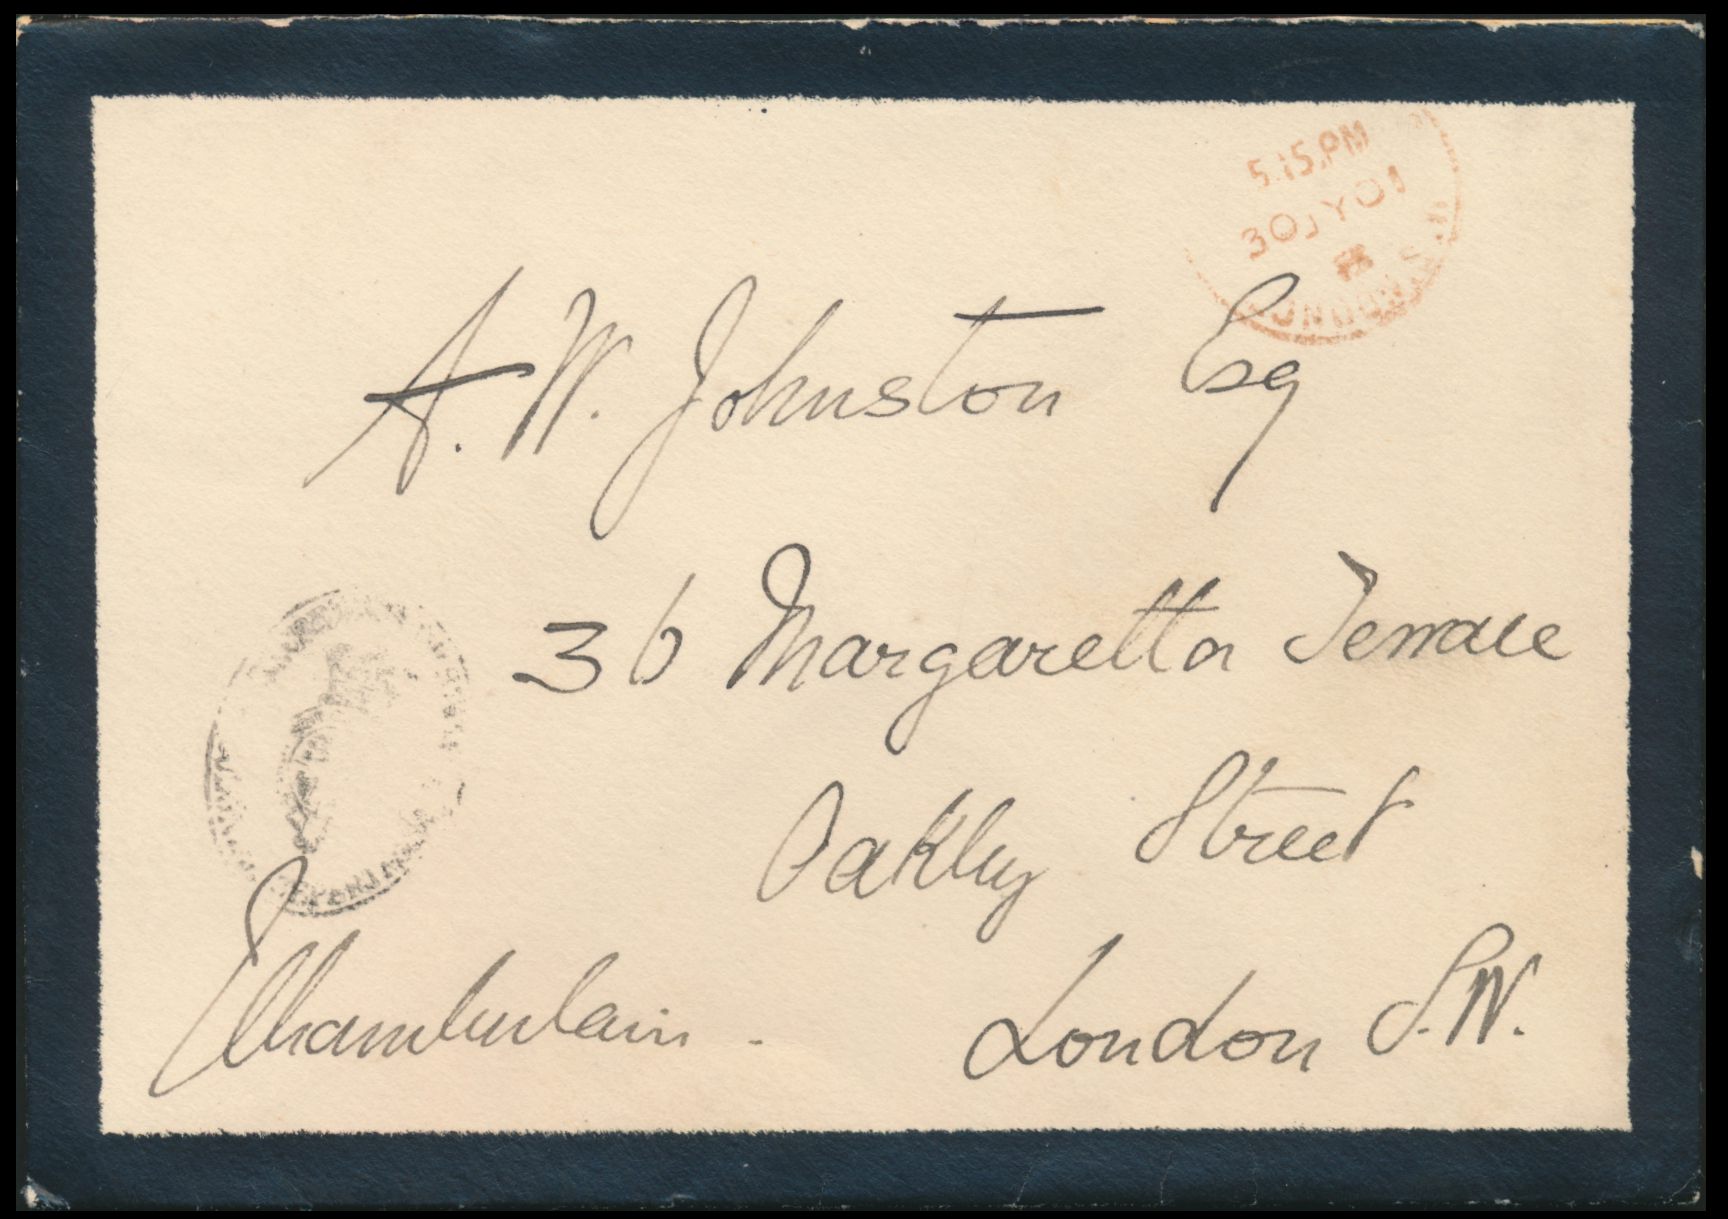 5.15.PM
30 JY 01
A. W. Johnston Esq
36 Margaretta Terrace
Oakley Street
London S.W.
Chamberlain.